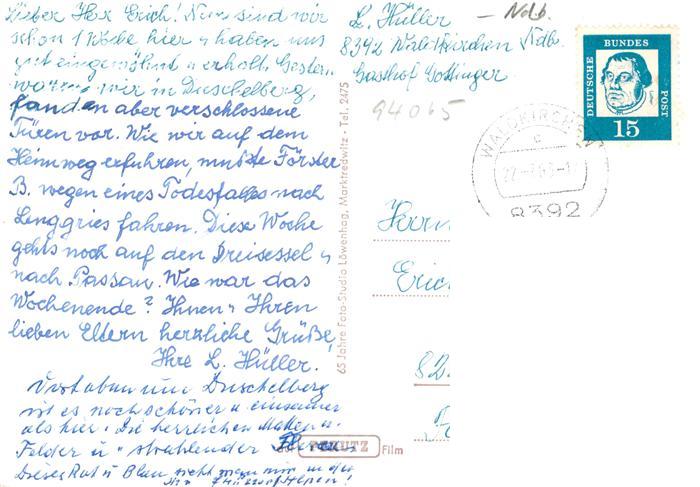 Lieber Herr Erich! Nun sind wir
schon 1 Woche hier u haben uns
gut eingewöhnt u erholt. Gestern
waren wir in Duschelberg,
fanden aber verschlossene
Türen vor. Wie wir auf dem
Heimweg erfuhren, mußte Förster
B. wegen eines Todesfalles nach
Lenggries fahren. Diese Woche
gehts noch auf den Dreisessel u
nach Passau. Wie war das
Wochenende? Ihnen u Ihren
lieben Eltern herzliche Grüße,
Ihre L. Hüller.
um Duschelberg
ist es noch schöner u einsamer
als hier. Die herrlichen
Felder u strahlender
Dieses Rot u Blau sieht man nur in den
65 Jahre Foto-Studio Löwenhag, Marktredwitz - Tel. 2475
SCHUTZ Film
L. Hüller
8392 Waldkirchen Ndb.
Gasthof Gottinger
- Ndb.
94065
DEUTSCHE BUNDES POST
15
WALDKIRCHEN
c
8392
Herrn
Eric
82